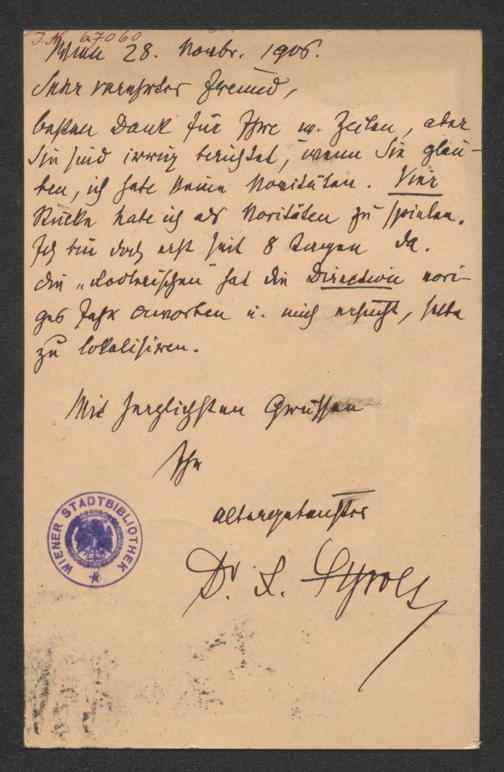 J. N. 67060
Wien 28. Novbr. 1906.
Sehr verehrter Freund,
besten Dank für Ihre w. Zeilen, aber
Sie sind irrig berichtet, wenn Sie glau-
ben, ich habe keine Novitäten. Vier
Stücke habe ich als Novitäten zu spielen.
Ich bin doch erst seit 8 Tagen da.
Die " " hat die Direction vori-
ges Jahr erworben u. mich ersucht, selbe
zu lokalisiren.
Mit herzlichsten Grüssen
Ihr
altergebenster
Dr. L.
WIENER STADTBIBLIOTHEK